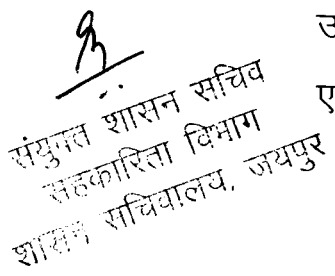 उ
ए
संयुक्त शासन सचिव
सहकारिता विभाग
शासन सचिवालय, जयपुर